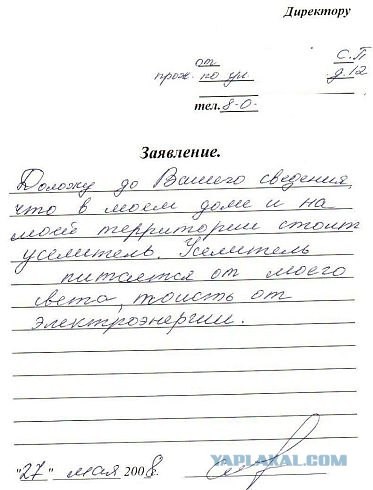 Директору
от С.П
прож. по ул. д.12
тел. 8-0.
Заявление.
Доложу до Вашего сведения,
что в моем доме и на
моей территории стоит
уселитель. Уселитель
питается от моего
света, тоисть от
электроэнергии.
"27" мая 2008г.
YAPLAKAL.COM